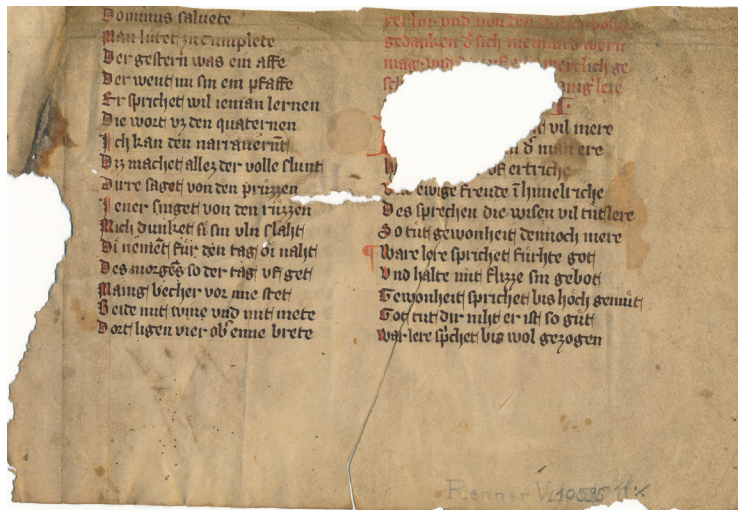 Dominus salvete
Man lutet zu Cumplete
Der gestern was ein affe
Der went nu sin ein pfaffe
Er sprichet wil ieman lernen
Die wort vz den quaternen
Ich kan den narraverūt
Diz machet allez der volle slunt
Dirre saget von den prüzzen
Jener singet von den rüzzen
Mich dunket si sin vln slaht
Di nemēt für den tag di naht
Des morgēs so der tag vf get
Manig becher vor mie stet
Beide mit wine vnd mit mete
Dort ligen vier ob eime brete
vnd von den
gedanken d sich nieman
mag
lere
vil mere
ere
vf ertriche
ewige freude ī himelriche
Des sprechen die wisen vil tütslere
So tüt gewonheit dennoch mere
Ware lere sprichet fürhte got
Vnd halte mit flizze sin gebot
Gewonheit sprichet bis hoch gemüt
Got tüt dir niht er ist so güt
War lere sp̄chet bis wol gezogen
Renner V. 10595 ff